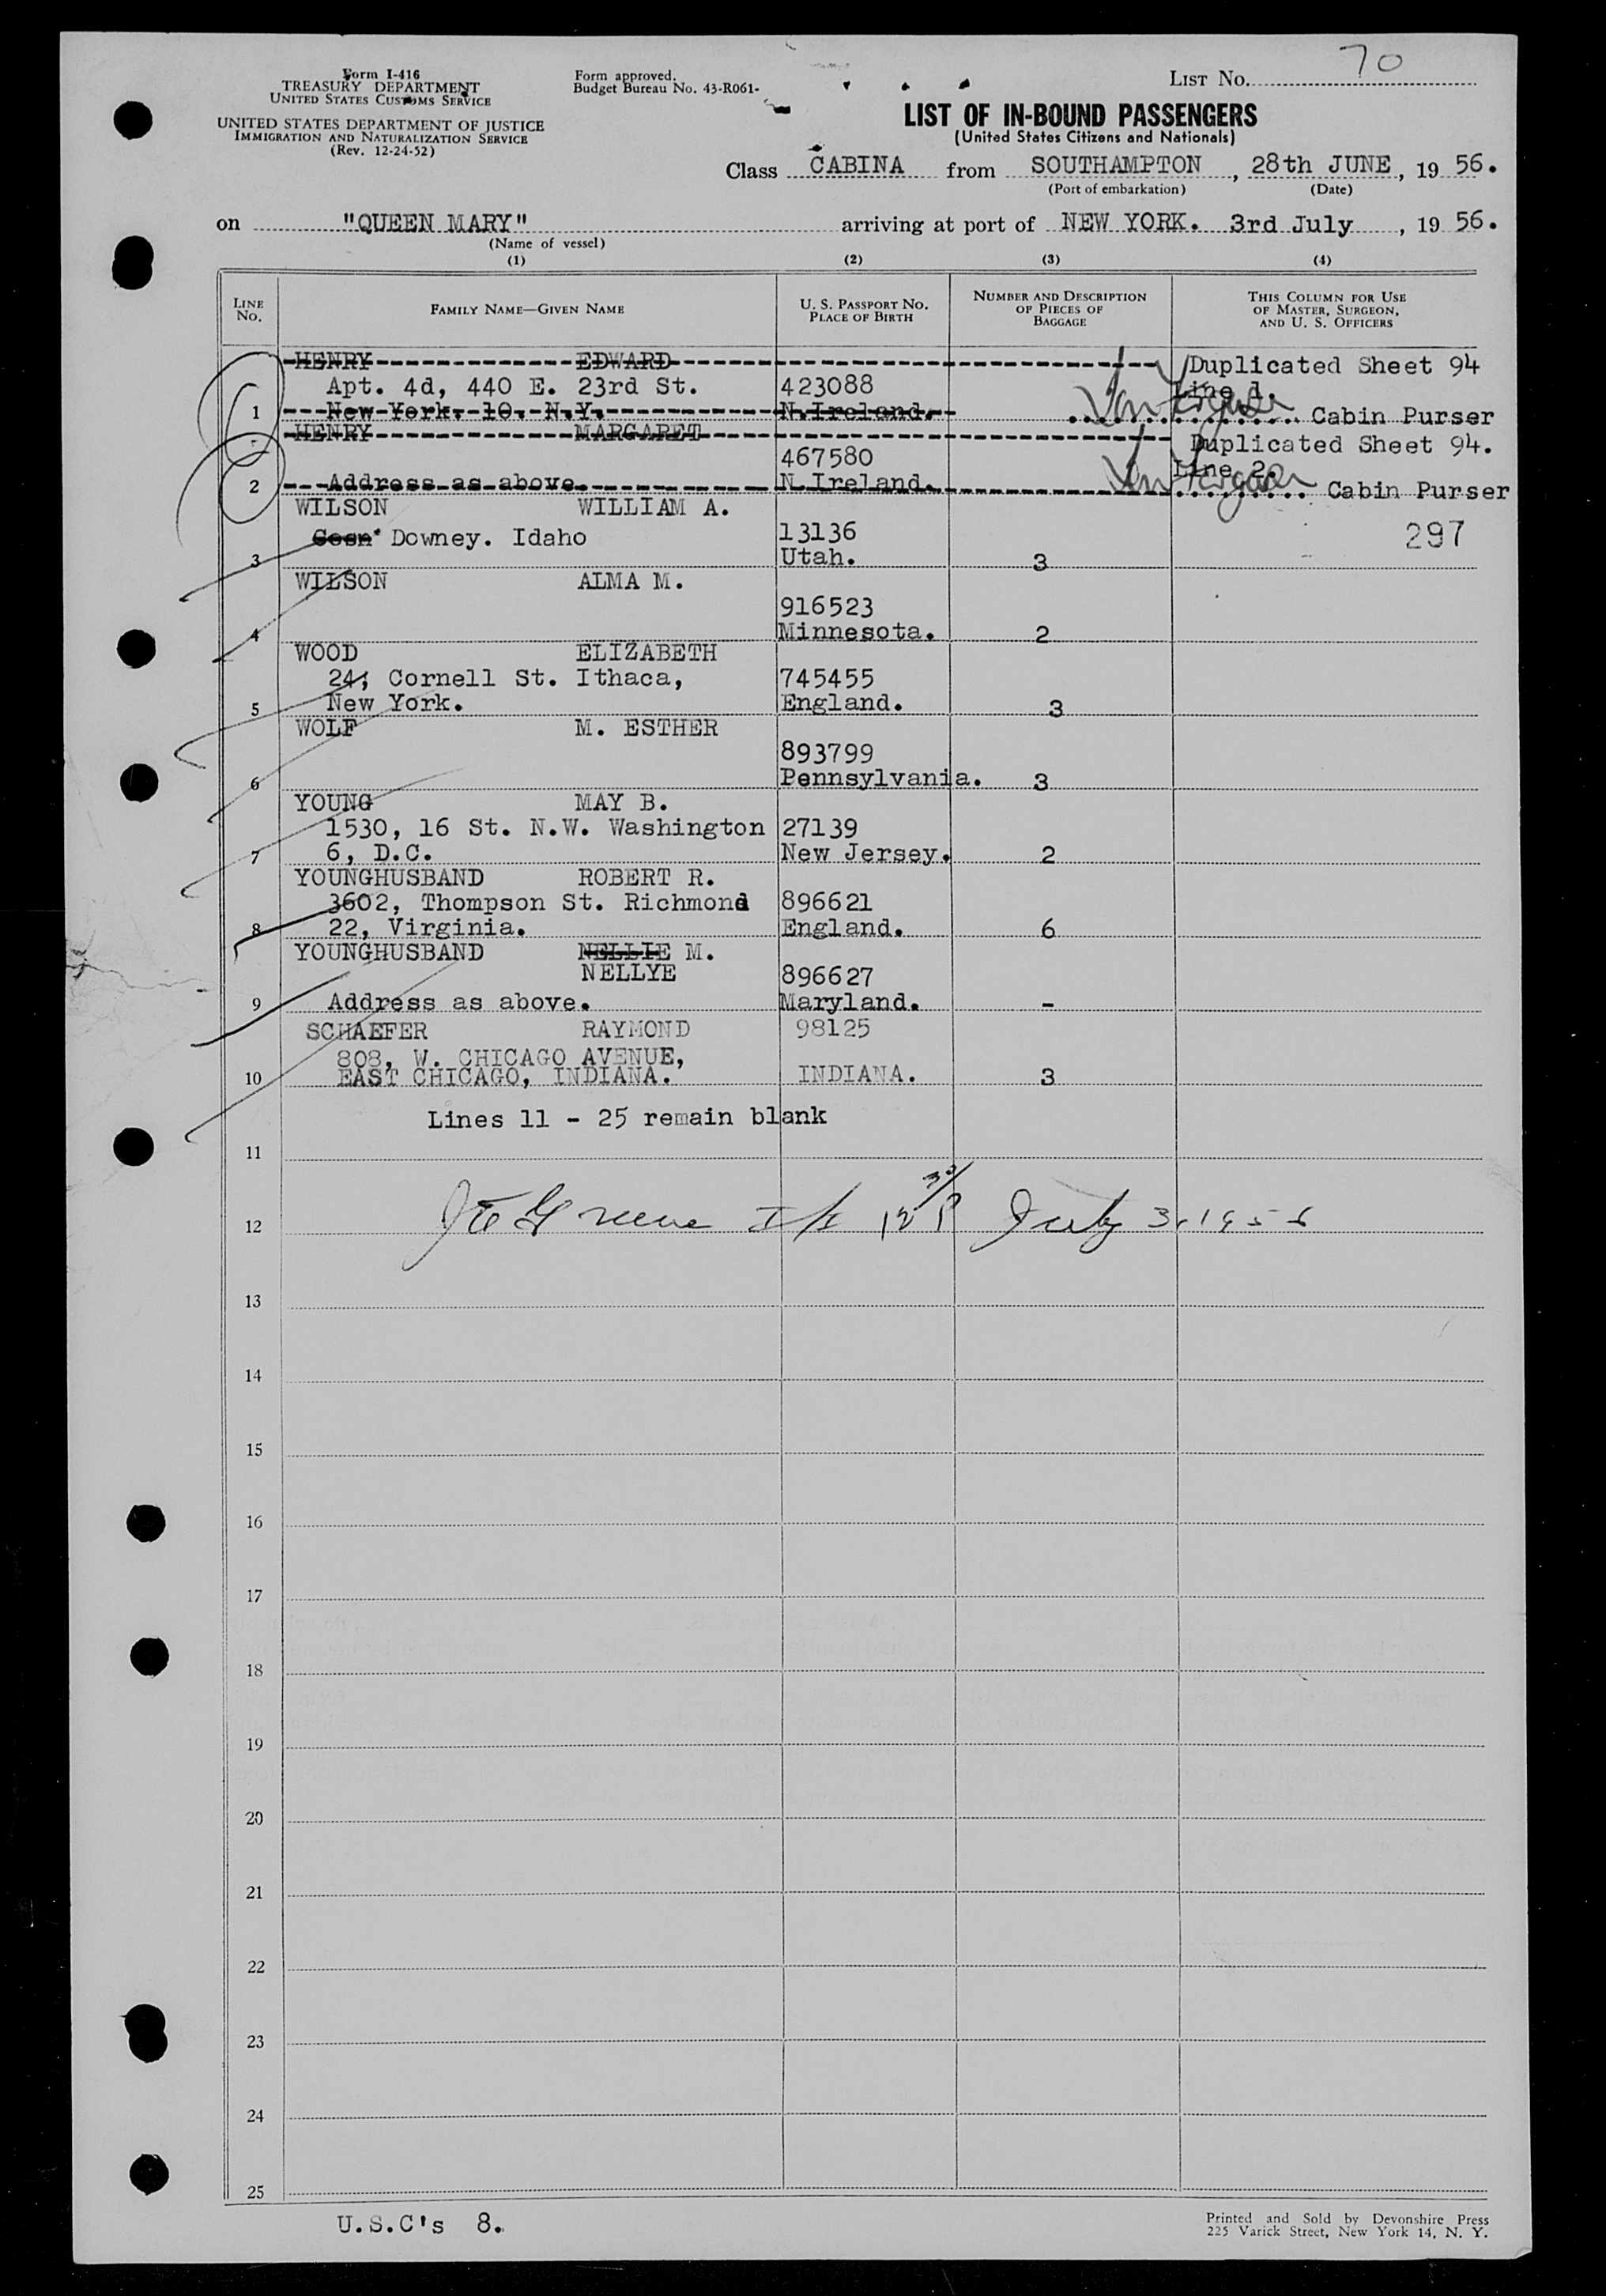 Form I-416
TREASURY DEPARTMENT
UNITED STATES CUSTOMS SERVICE
UNITED STATES DEPARTMENT OF JUSTICE
IMMIGRATION AND NATURALIZATION SERVICE
(Rev. 12-24-52)
Form approved.
Budget Bureau No. 43-R061-
LIST NO. 70
LIST OF IN-BOUND PASSENGERS
(United States Citizens and Nationals)
Class CABINA from SOUTHAMPTON, 28th JUNE, 19 56.
(Port of embarkation) (Date)
on "QUEEN MARY" arriving at port of NEW YORK. 3rd July, 19 56.
(Name of vessel)
(1) (2) (3) (4)
LINE NO. FAMILY NAME—GIVEN NAME U. S. PASSPORT NO. PLACE OF BIRTH NUMBER AND DESCRIPTION OF PIECES OF BAGGAGE THIS COLUMN FOR USE OF MASTER, SURGEON, AND U. S. OFFICERS
HENRY EDWARD Duplicated Sheet 94
Apt. 4d, 440 E. 23rd St. 423088 Line 1.
1 New York. 10. N.Y. N.Ireland. Cabin Purser
HENRY MARGARET Duplicated Sheet 94.
467580 Line 2.
2 Address as above. N.Ireland. Cabin Purser
WILSON WILLIAM A.
Downey. Idaho 13136 297
3 Utah. 3
WILSON ALMA M.
916523
4 Minnesota. 2
WOOD ELIZABETH
24, Cornell St. Ithaca, 745455
5 New York. England. 3
WOLF M. ESTHER
893799
6 Pennsylvania. 3
YOUNG MAY B.
1530, 16 St. N.W. Washington 27139
7 6, D.C. New Jersey. 2
YOUNGHUSBAND ROBERT R.
3602, Thompson St. Richmond 896621
8 22, Virginia. England. 6
YOUNGHUSBAND NELLIE M.
NELLYE 896627
9 Address as above. Maryland. -
SCHAEFER RAYMOND 98125
808, W. CHICAGO AVENUE,
10 EAST CHICAGO, INDIANA. INDIANA. 3
Lines 11 - 25 remain blank
11
12 Greene July 3, 1956
13
14
15
16
17
18
19
20
21
22
23
24
25
U.S.C's 8.
Printed and Sold by Devonshire Press
225 Varick Street, New York 14, N. Y.